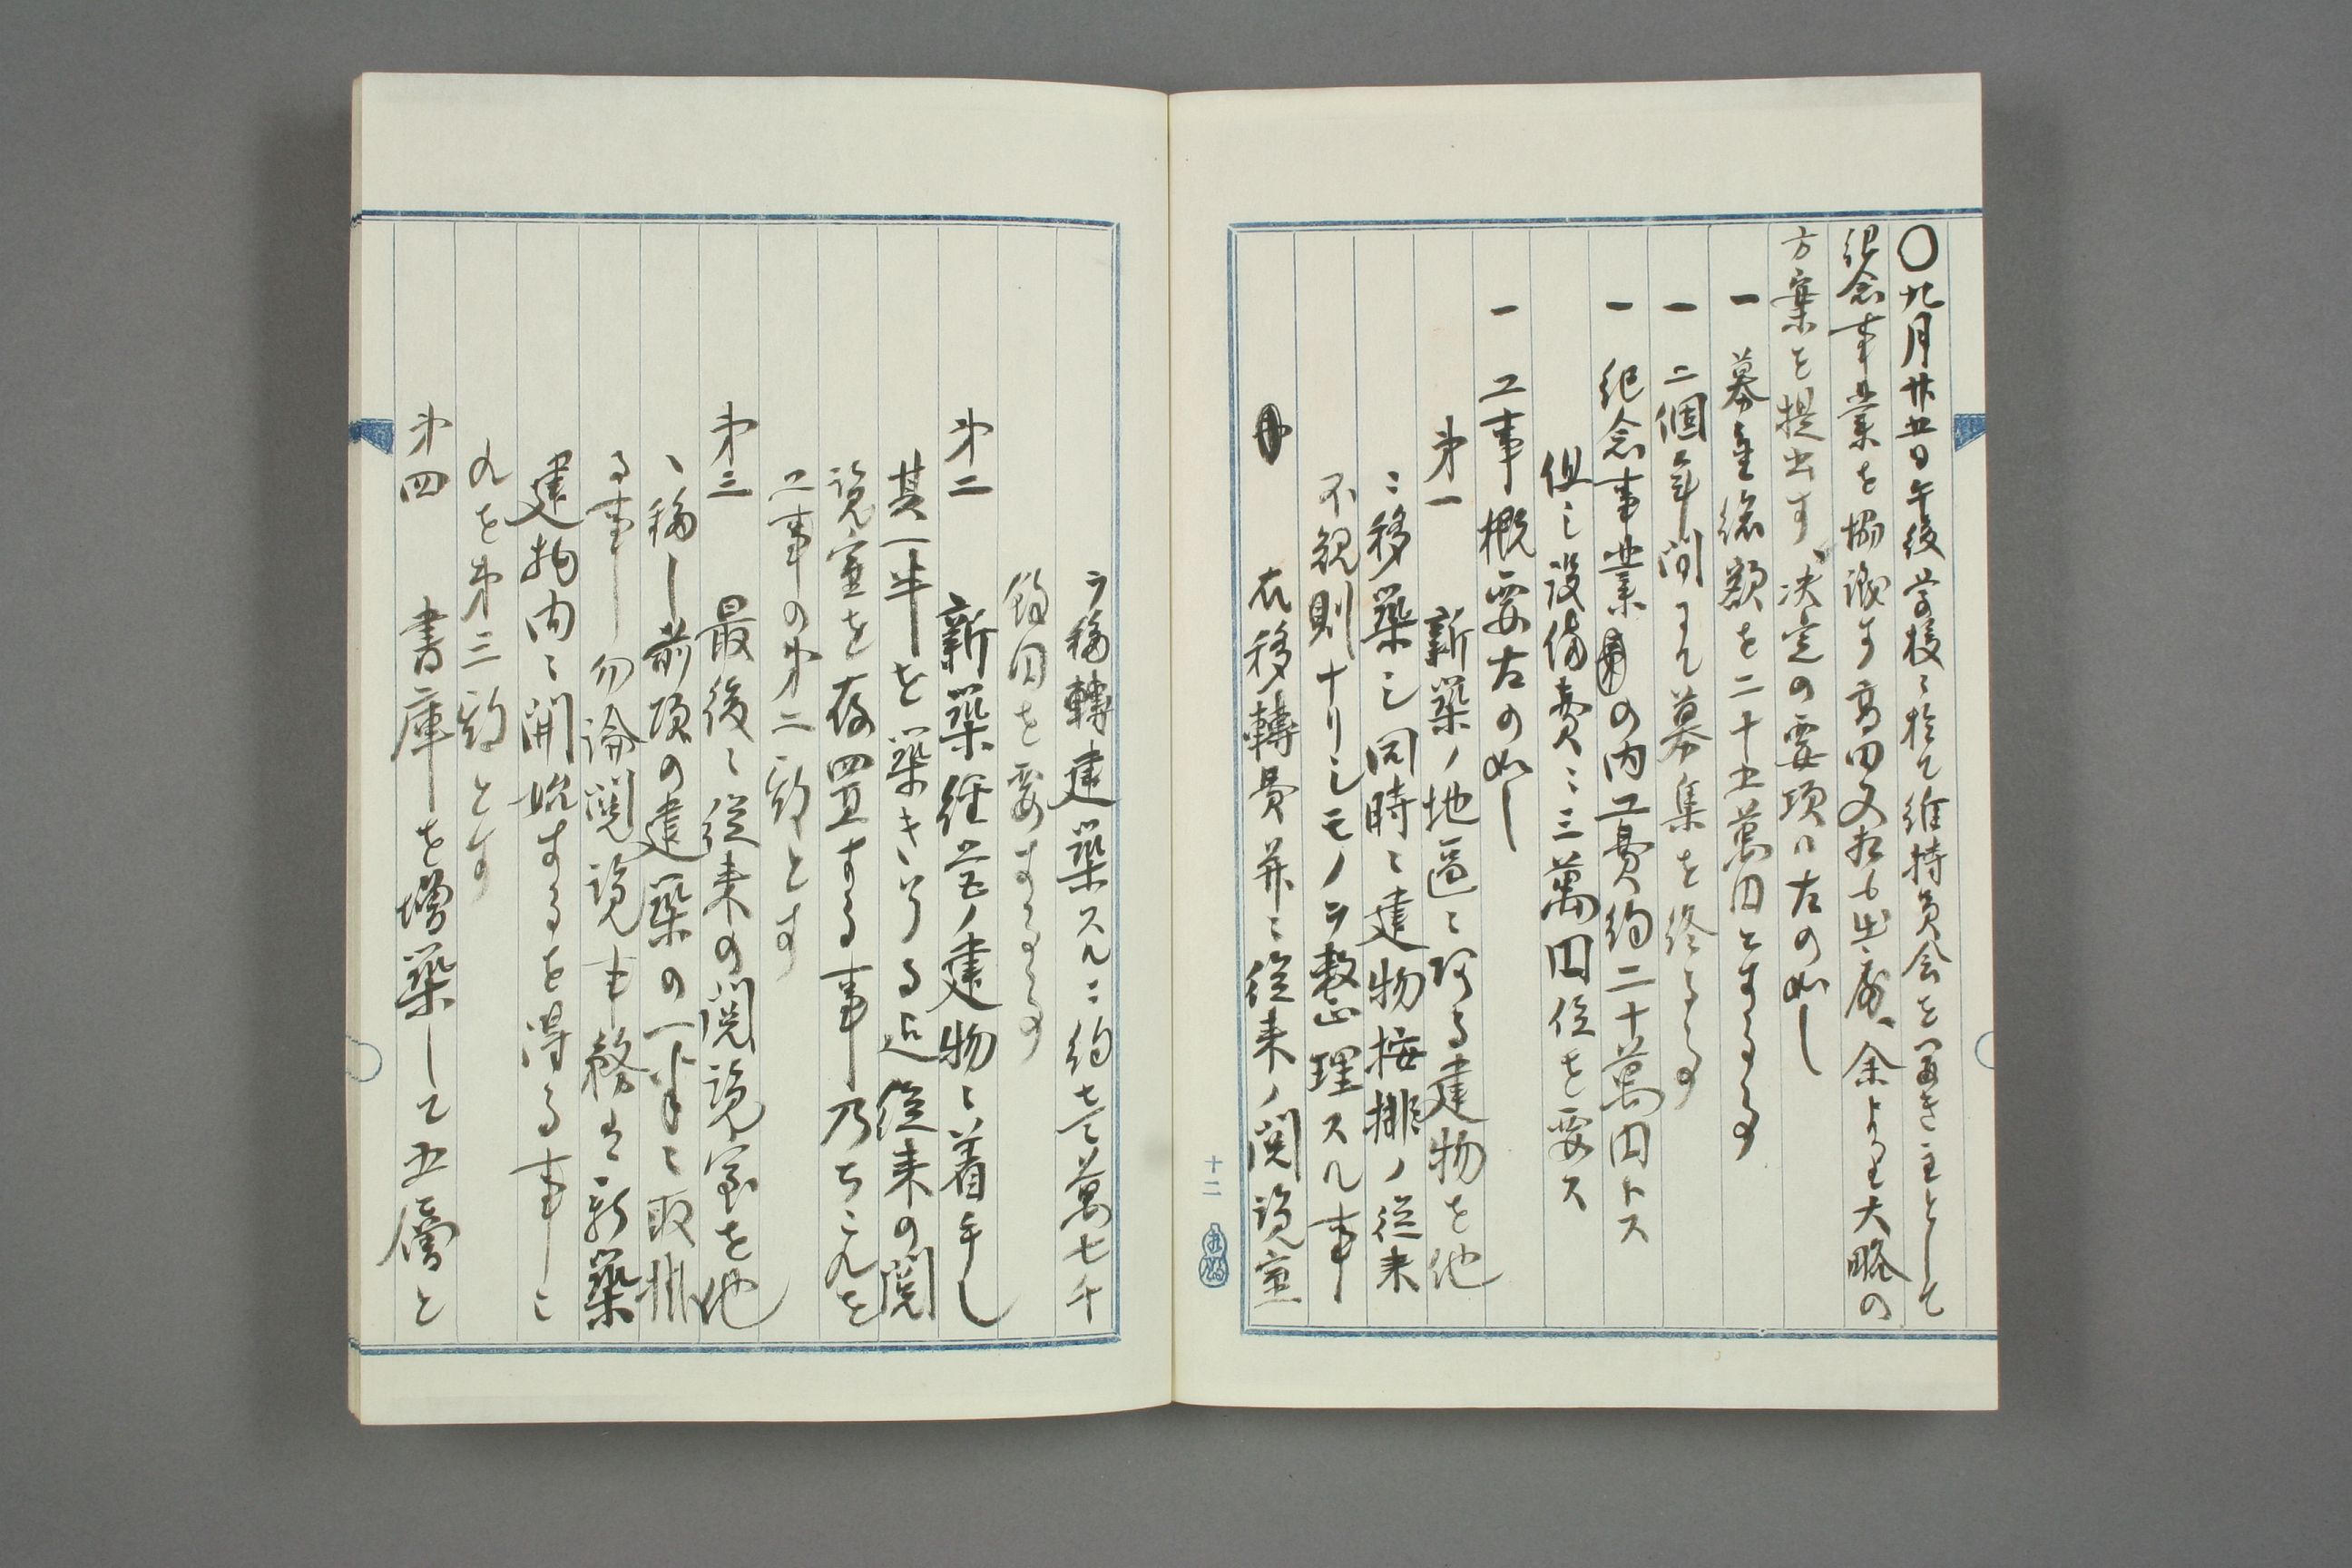 〇九月廿五日午後学校に於て維持員会を開き主として
紀念事業を協議す高田文相も出席、余より大略の
方案を提出す、決定の要項は左の如し
一 募金総額を二十五萬円とする事
一 二個年間にて募集を終る事
一 紀念事業の内工費約二十萬円トス
但し設備費ニ三萬円位を要ス
一 工事概要左の如し
第一 新築ノ地區に在る建物を他
ニ移築し同時に建物按排ノ従来
不規則ナリしモノヲ整理スル事
右移轉費并ニ従来ノ閲覧室
ヲ移轉建築スルニ約壱萬七千
餘円を要する事
第二 新築経営ノ建物に着手し
其一半を築き了る迄従来の閲
覧室を存置する事乃ちこれを
工事の第二段とす
第三 最後に従来の閲覧室を他
に移し前項の建築の一半に取掛
る事し勿論閲覧も事務も新築
建物内に開始するを得る事こ
れを第三段とす
第四 書庫を増築して五層と
十二